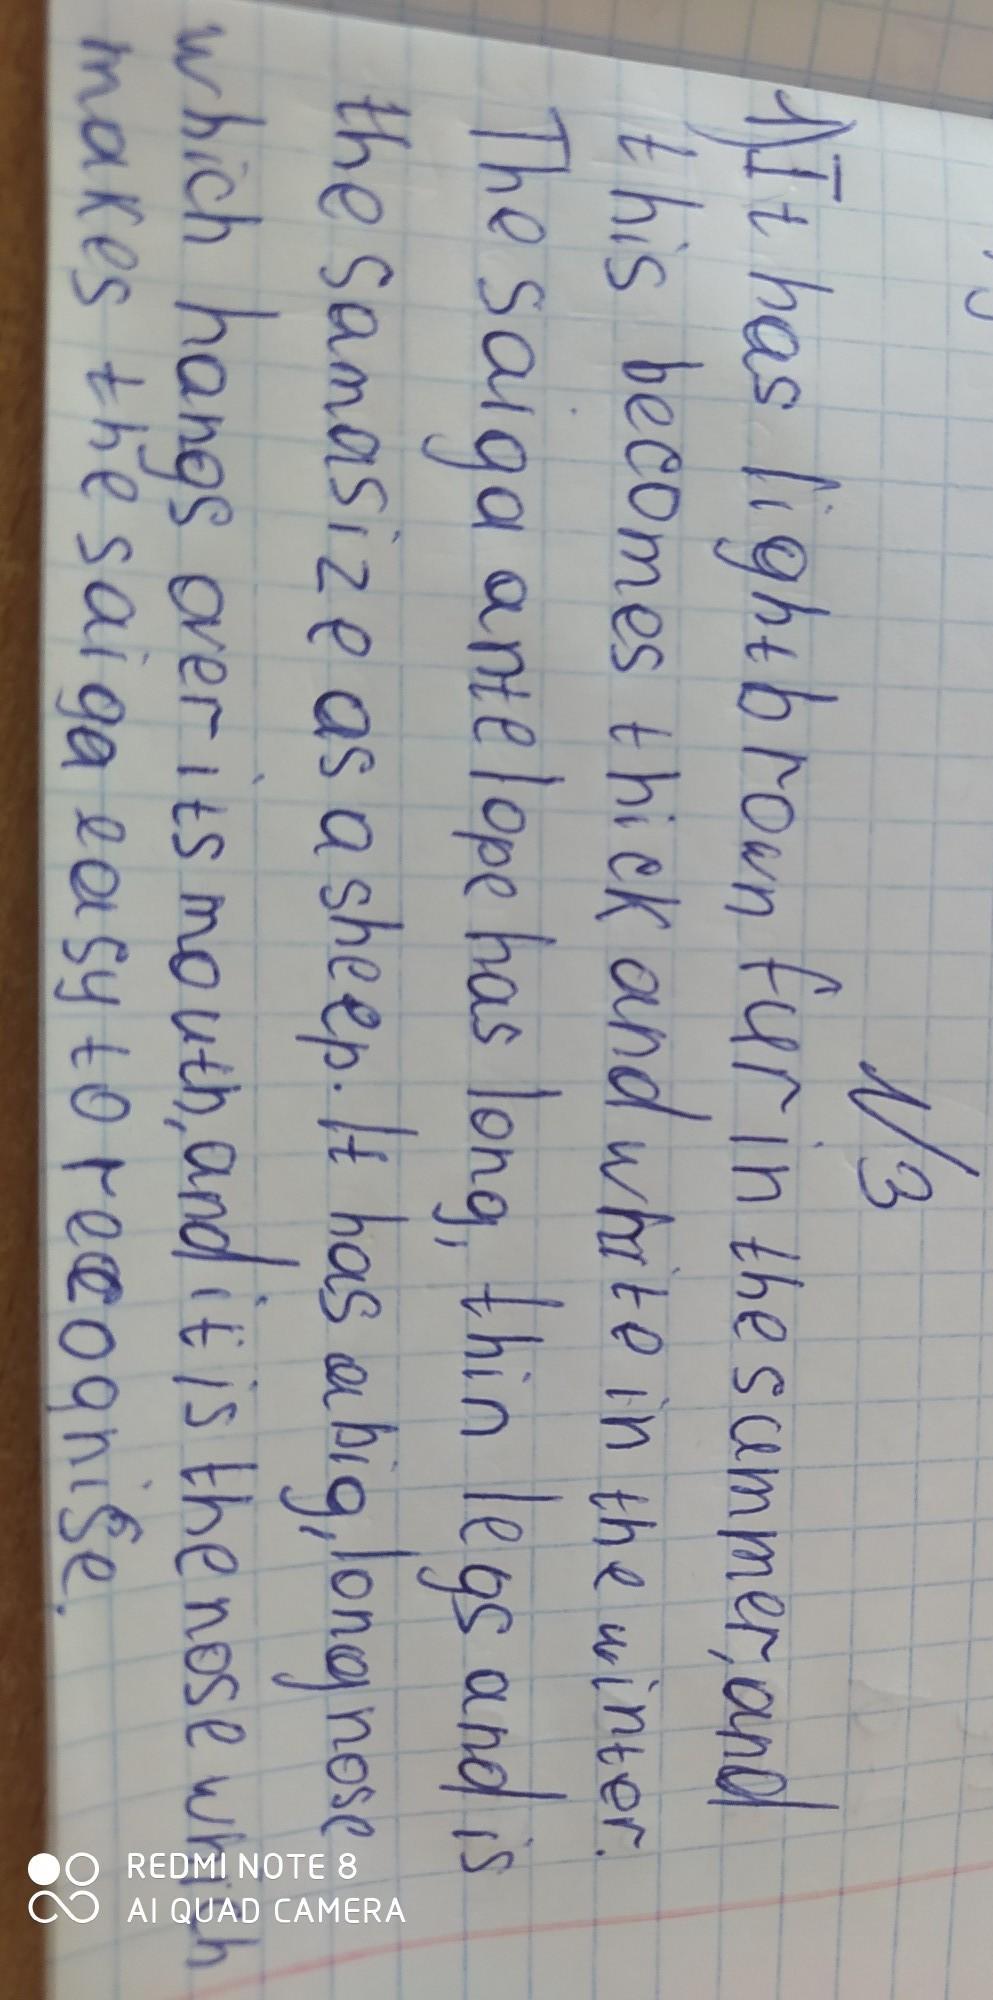 N3
1) It has light brown fur in the summer, and
this becomes thick and white in the winter.
The saiga antelope has long, thin legs and is
the sama size as a sheep. It has a big, long nose
which hangs over its mouth, and it is the nose which
makes the saiga easy to recognise.
REDMI NOTE 8
AI QUAD CAMERA